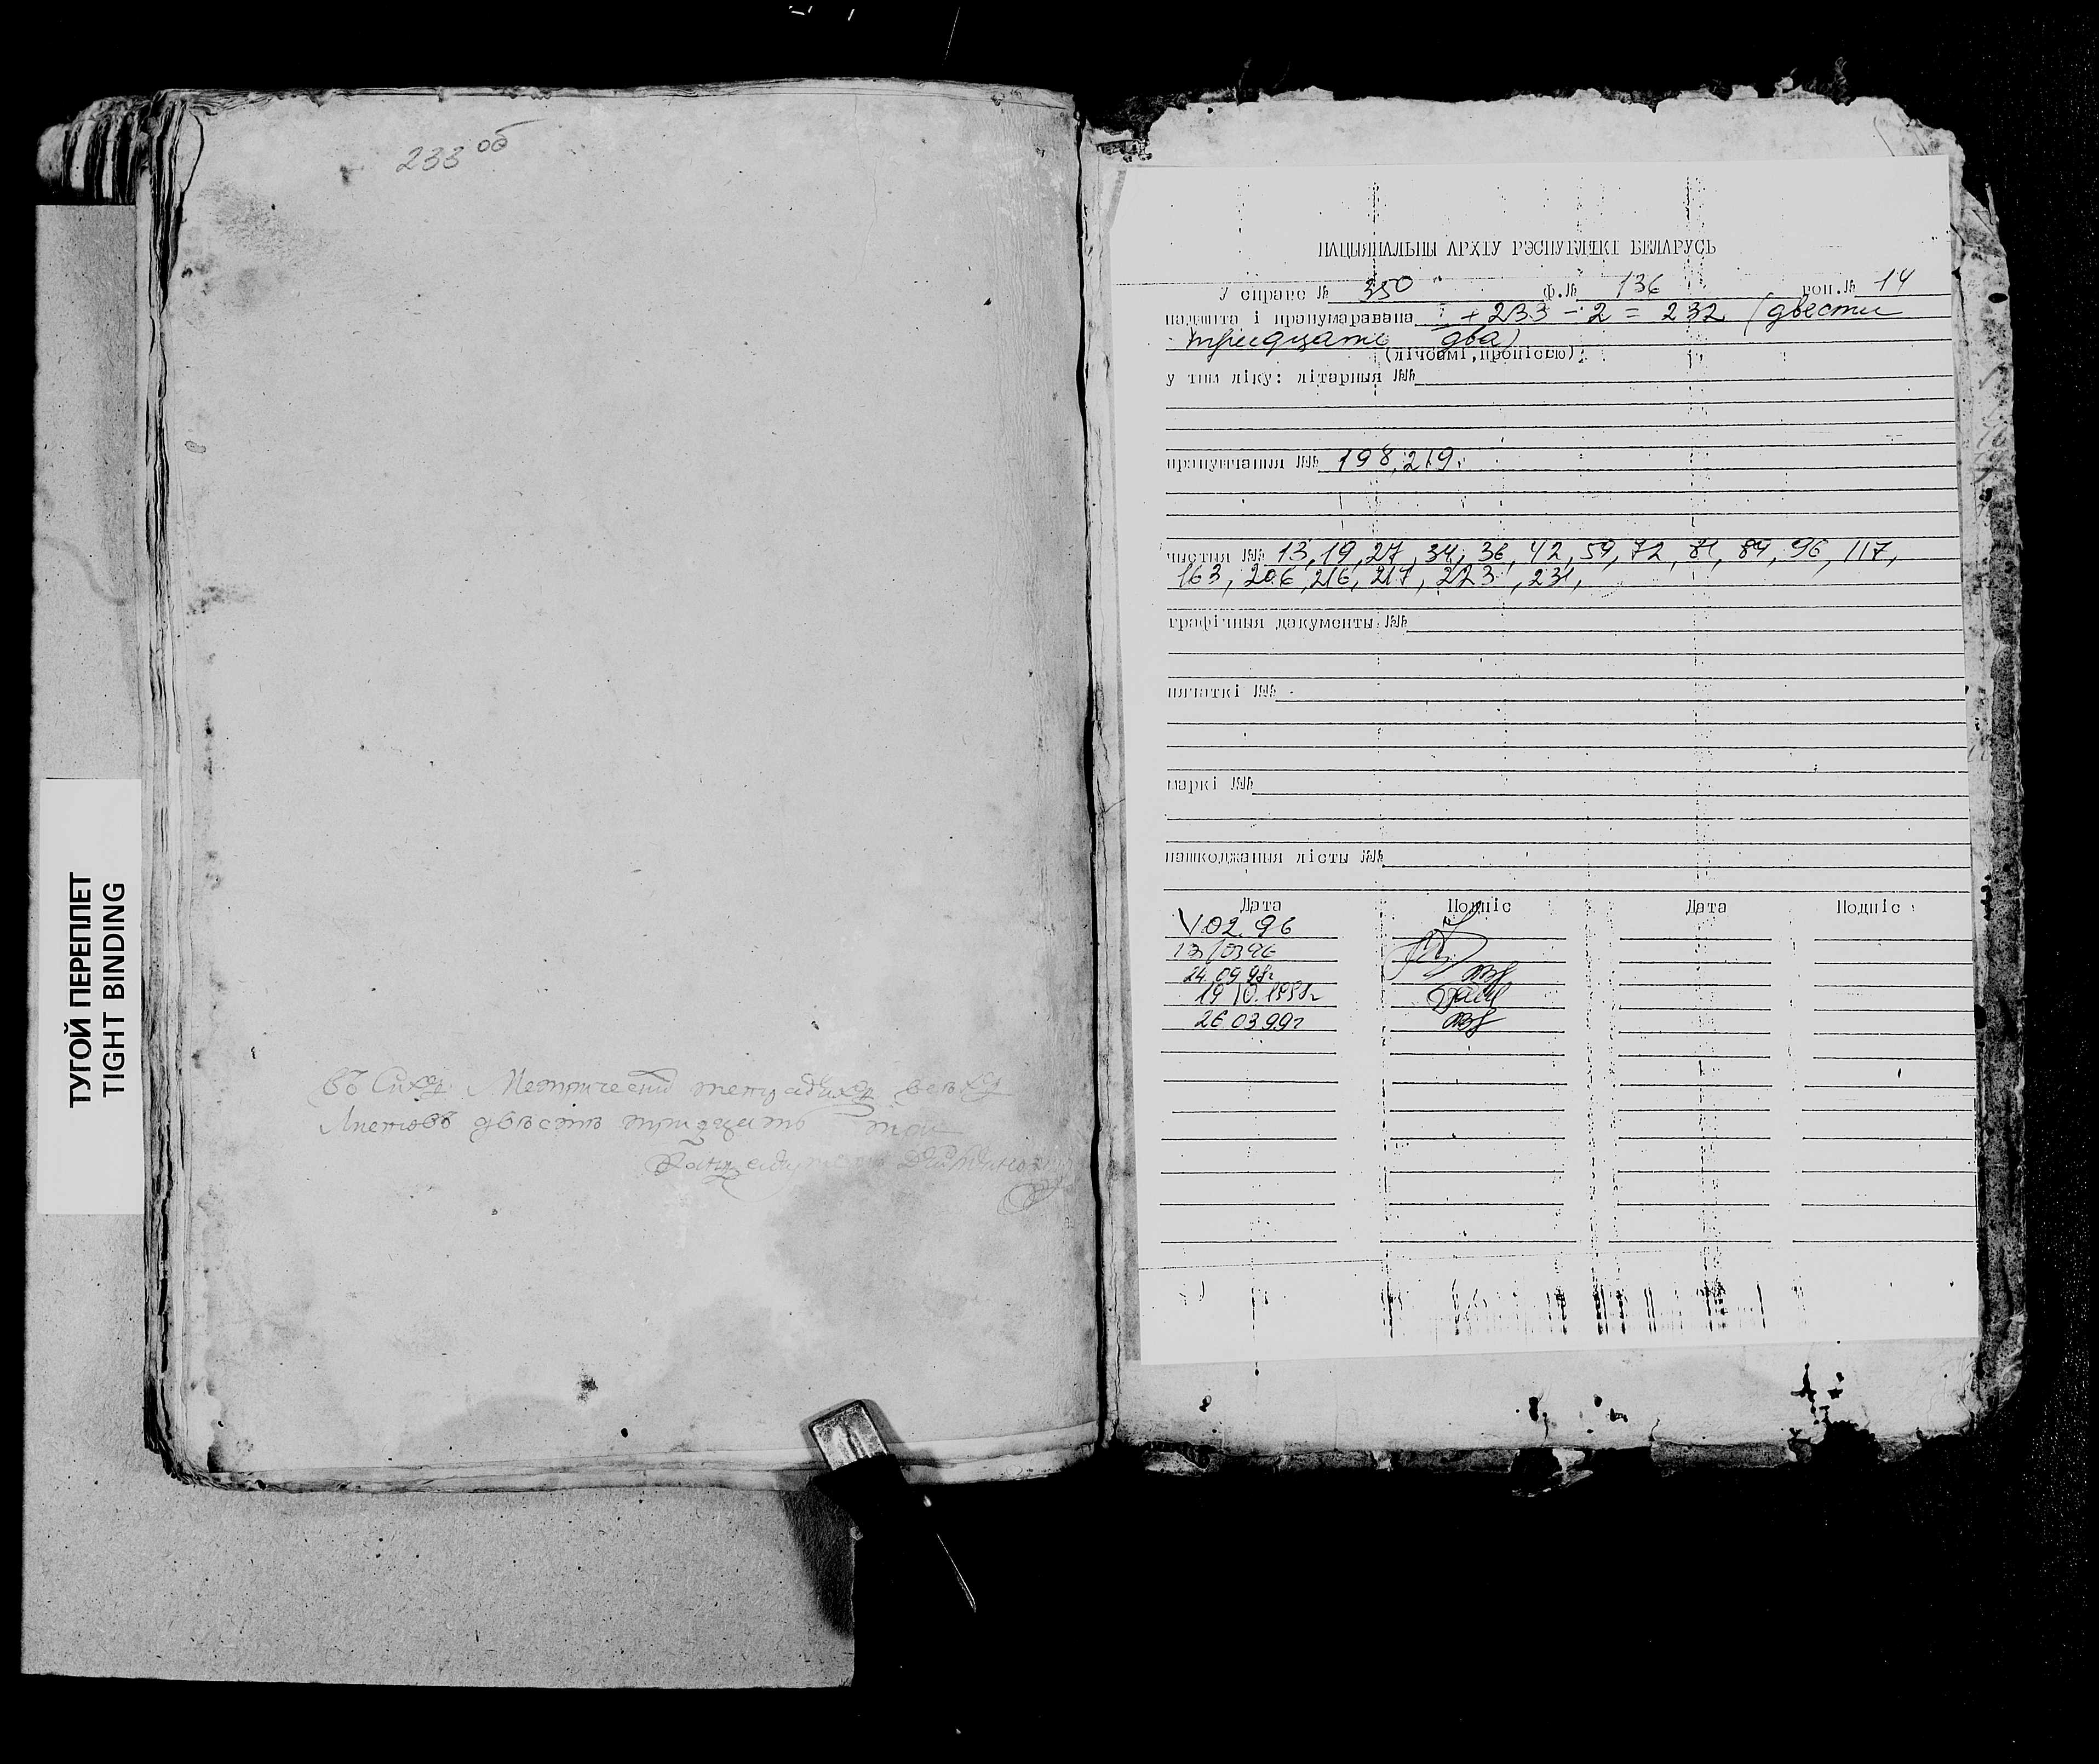 233 об
ТУГОЙ ПЕРЕПЛЕТ
TIGHT BINDING
Въ Сихъ Метрическихъ тетрадихъ всехъ
Листовъ двесте тридцать три
НАЦЫЯНАЛЬНЫ АРХІЎ РЭСПУБЛІКІ БЕЛАРУСЬ
У справе № 350 ф.№ 136 воп.№ 14
падшыта і пранумаравана I + 233 - 2 = 232 (двести
тридцать два)
(лічбамі, пропіссю)
у тым ліку: літарныя №№
прапушчаныя №№ 198, 219.
чыстыя №№ 13, 19, 27, 34, 36, 42, 59, 72, 81, 89, 96, 117,
163, 206, 216, 217, 223, 231,
графічныя дакументы №№
пячаткі №№
маркі №№
пашкоджаныя лісты №№
Дата Подпіс Дата Подпіс
V.02.96
13/0396
24.09.98г
19.10.1998г
26.03.99г